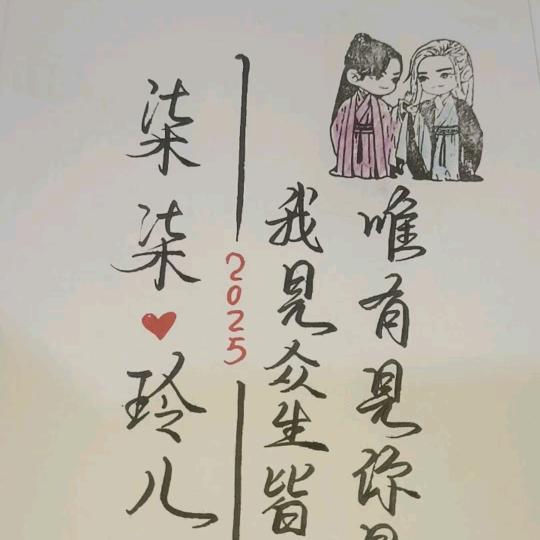 柒柒♥玲儿
2025
我見众生皆
唯有見你